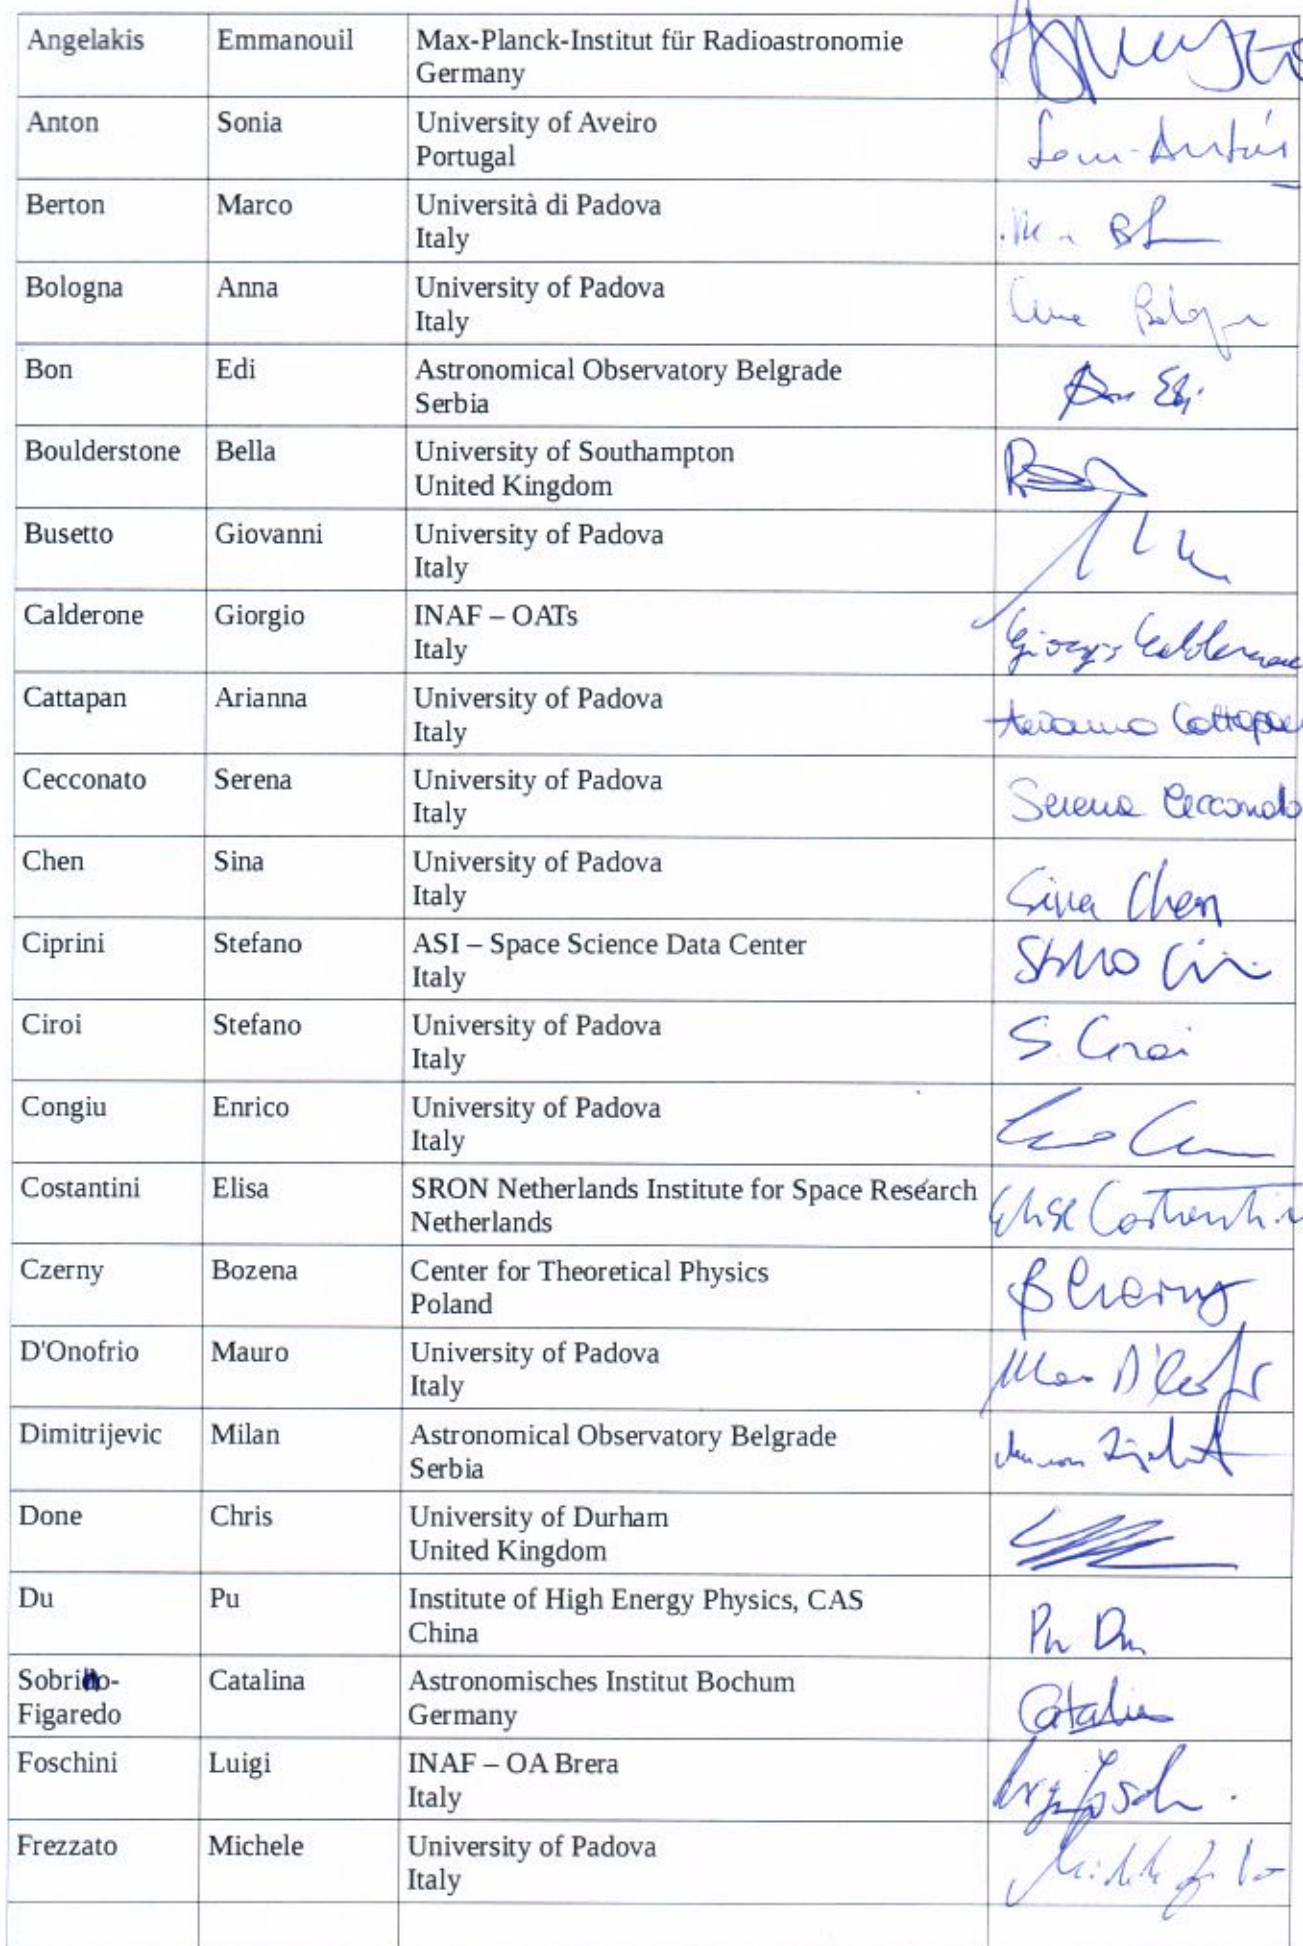 Angelakis Emmanouil Max-Planck-Institut für Radioastronomie
Germany
Anton Sonia University of Aveiro
Portugal
Berton Marco Università di Padova
Italy
Bologna Anna University of Padova
Italy
Bon Edi Astronomical Observatory Belgrade
Serbia Bon Edi
Boulderstone Bella University of Southampton
United Kingdom
Busetto Giovanni University of Padova
Italy
Calderone Giorgio INAF – OATs
Italy Giorgio Calderone
Cattapan Arianna University of Padova
Italy Arianna Cattapan
Cecconato Serena University of Padova
Italy Serena Cecconato
Chen Sina University of Padova
Italy Sina Chen
Ciprini Stefano ASI – Space Science Data Center
Italy
Ciroi Stefano University of Padova
Italy S. Ciroi
Congiu Enrico University of Padova
Italy
Costantini Elisa SRON Netherlands Institute for Space Research
Netherlands Elisa Costantini
Czerny Bozena Center for Theoretical Physics
Poland B Czerny
D'Onofrio Mauro University of Padova
Italy
Dimitrijevic Milan Astronomical Observatory Belgrade
Serbia
Done Chris University of Durham
United Kingdom
Du Pu Institute of High Energy Physics, CAS
China Pu Du
Catalina Astronomisches Institut Bochum
Figaredo Germany Catalina
Foschini Luigi INAF – OA Brera
Italy
Frezzato Michele University of Padova
Italy